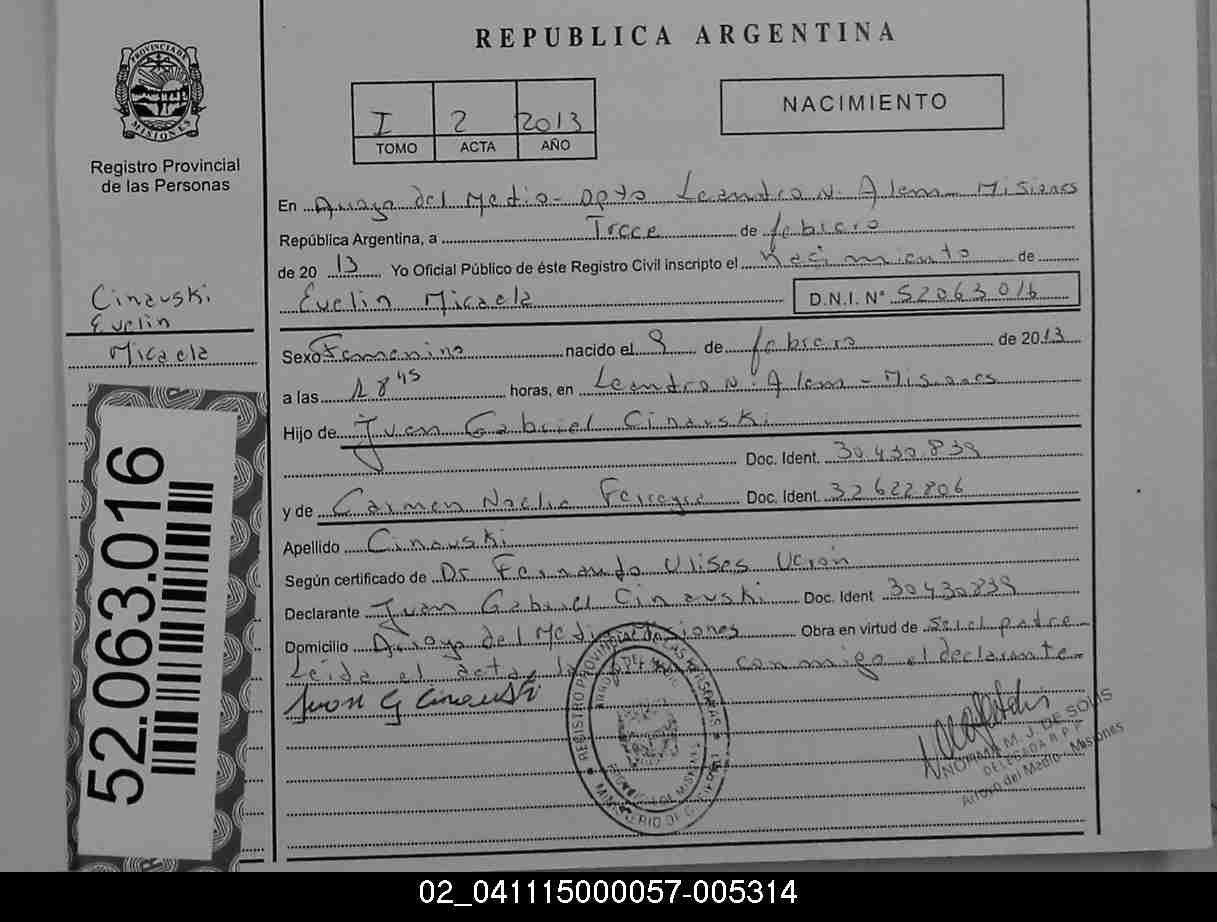 REPUBLICA ARGENTINA
PROVINCIA DE
MISIONES
Registro Provincial
de las Personas
I 2 2013
TOMO ACTA AÑO
NACIMIENTO
En Arroyo del Medio - Dpto Leandro N. Alem - Misiones
República Argentina, a Trece de febrero
de 20 13 Yo Oficial Público de éste Registro Civil inscripto el Nacimiento de
Evelin Micaela D.N.I. N° 52063016
Cinauski
Evelin
Micaela
Sexo Femenino nacido el 9 de febrero de 2013
a las 18 45 horas, en Leandro N. Alem - Misiones
Hijo de Juan Gabriel Cinauski
Doc. Ident. 30.430.839
y de Carmen Noelia Ferreyra Doc. Ident. 32622806
Apellido Cinauski
Según certificado de Dr Fernando Ulises
Declarante Juan Gabriel Cinauski Doc. Ident 30430839
Domicilio Arroyo del Medio Misiones Obra en virtud de Ser el padre
Leida el acta, la conmigo el declarante
Juan G Cinauski
REGISTRO PROVINCIAL DE LAS PERSONAS
MINISTERIO DE GOBIERNO
PROVINCIA DE MISIONES
NORMA M. J. DE SOLIS
DELEGADA R.P.P.
Arroyo del Medio - Misiones
52.063.016
02_041115000057-005314